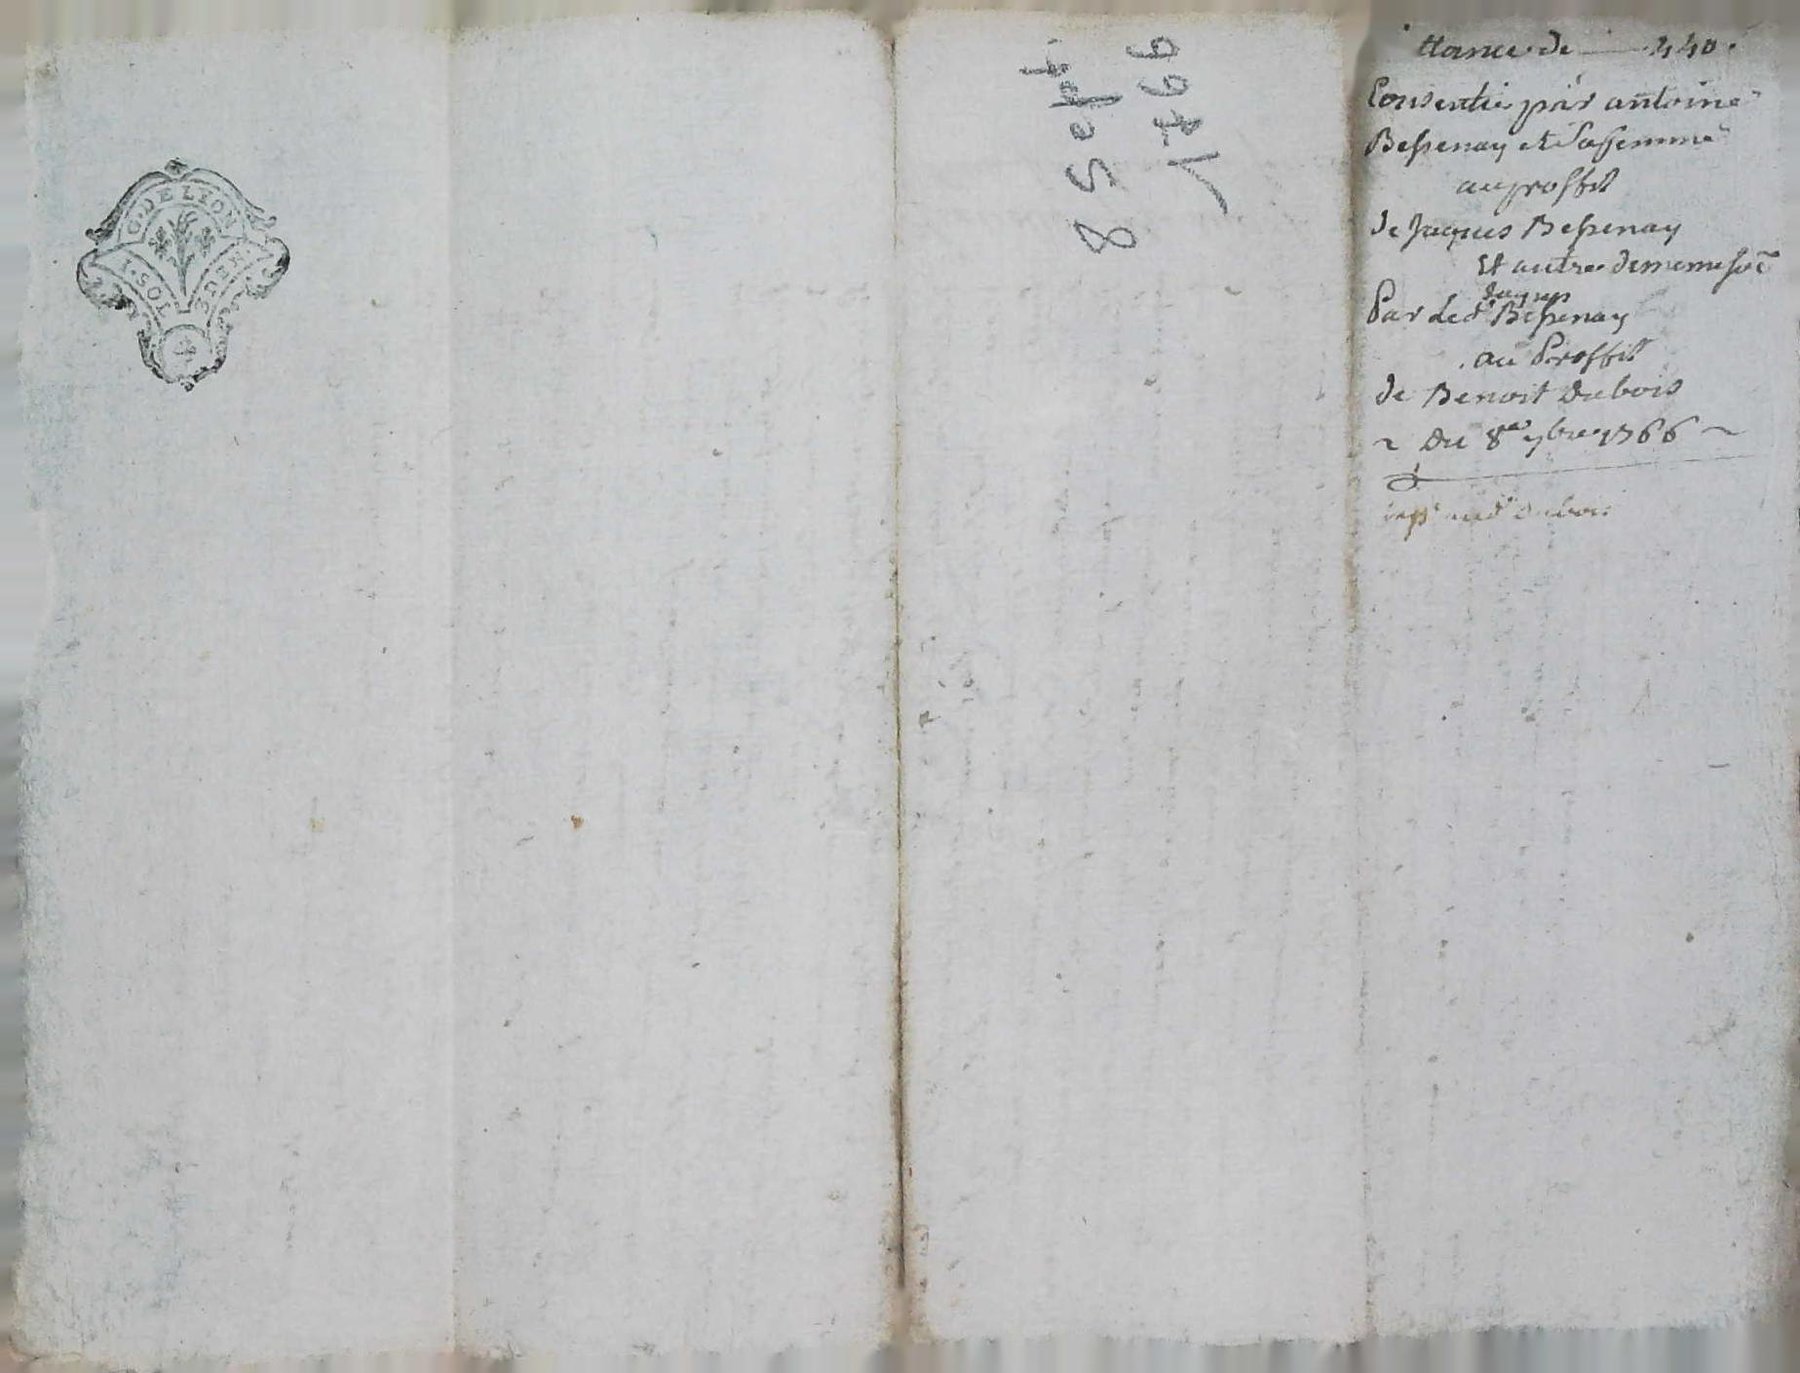 G. DE LYON
I. SOL
8 Sept
1766
ttance de — 440.
Consentie par antoine
Bessenay et Sa femme
au proffit
de Jaques Bessenay
Et autre de meme so͠e
Jaques
Par Led. Bessenay
au Proffit
de Benoit Dubois
~ Du 8e 7bre 1766 ~
Dubois